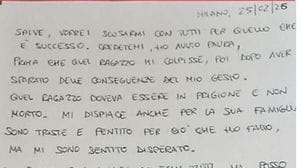 MILANO, 25/02/26
SALVE, VORREI SCUSARMI CON TUTTI PER QUELLO CHE
È SUCCESSO. CREDETEMI, HO AVUTO PAURA,
PRIMA CHE QUEL RAGAZZO MI COLPISSE, POI DOPO AVER
SPARATO DELLE CONSEGUENZE DEL MIO GESTO.
QUEL RAGAZZO DOVEVA ESSERE IN PRIGIONE E NON
MORTO. MI DISPIACE ANCHE PER LA SUA FAMIGLIA
SONO TRISTE E PENTITO PER CIÒ CHE HO FATTO,
MA MI SONO SENTITO DISPERATO.
TUTTI MA POSSO